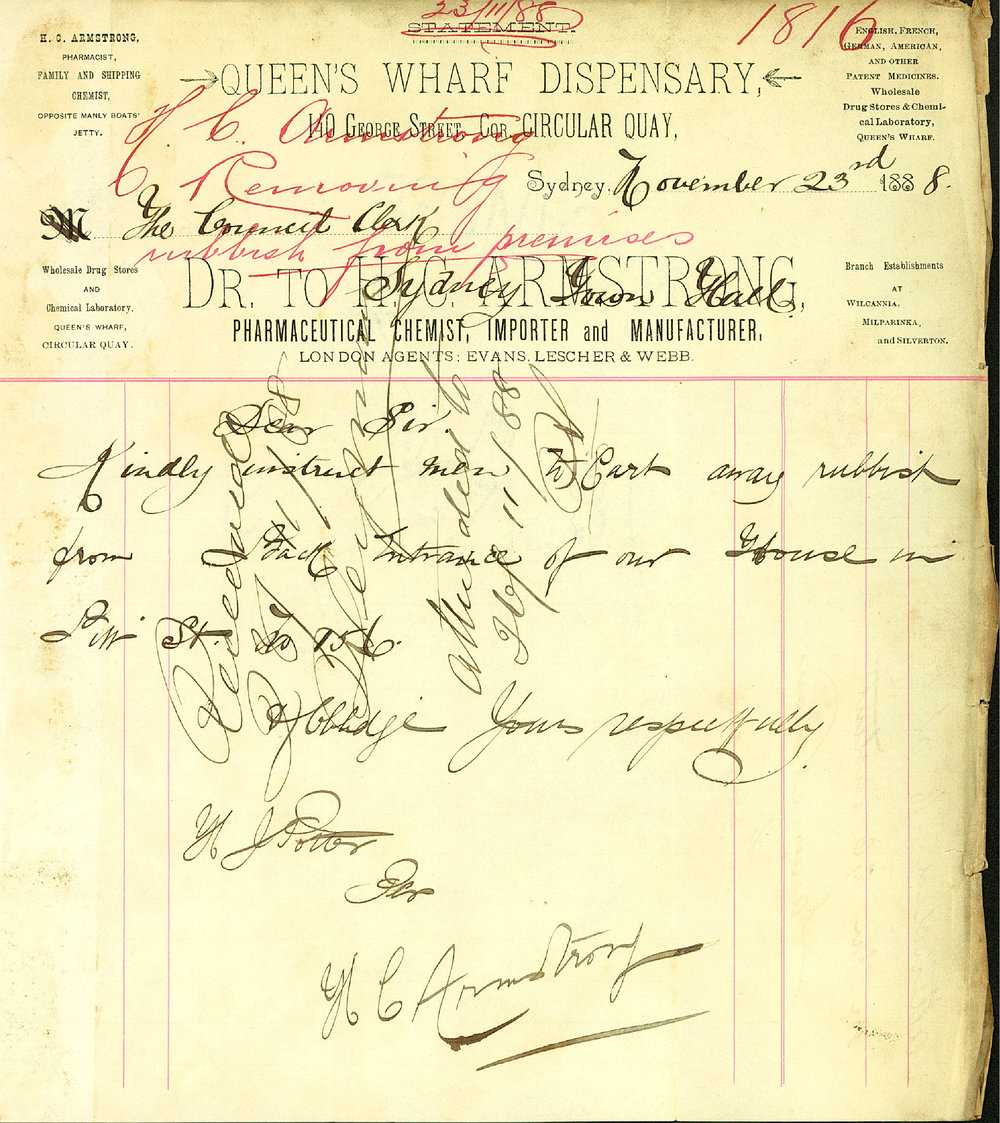 23/11/88
1816
STATEMENT.
H. C. ARMSTRONG,
PHARMACIST,
FAMILY AND SHIPPING
CHEMIST,
OPPOSITE MANLY BOATS'
JETTY.
QUEEN'S WHARF DISPENSARY,
140 GEORGE STREET, COR. CIRCULAR QUAY,
ENGLISH, FRENCH,
GERMAN, AMERICAN,
AND OTHER
PATENT MEDICINES.
Wholesale
Drug Stores & Chemi-
cal Laboratory,
QUEEN'S WHARF.
H. C. Armstrong
Removing
rubbish from premises
Sydney, November 23rd 1888.
M The Council Clerk
Sydney Town Hall
Wholesale Drug Stores
AND
Chemical Laboratory,
QUEEN'S WHARF,
CIRCULAR QUAY.
DR. TO H. C. ARMSTRONG,
PHARMACEUTICAL CHEMIST, IMPORTER and MANUFACTURER,
LONDON AGENTS: EVANS, LESCHER & WEBB.
Branch Establishments
AT
WILCANNIA,
MILPARINKA,
and SILVERTON.
Dear Sir.
Kindly instruct men to Cart away rubbish
from Back Entrance of our House in
Pitt St. No 156.
& Obbidge Yours respectfully
H J Potter
Per
H C Armstrong
Received
Attended to
26/11/88